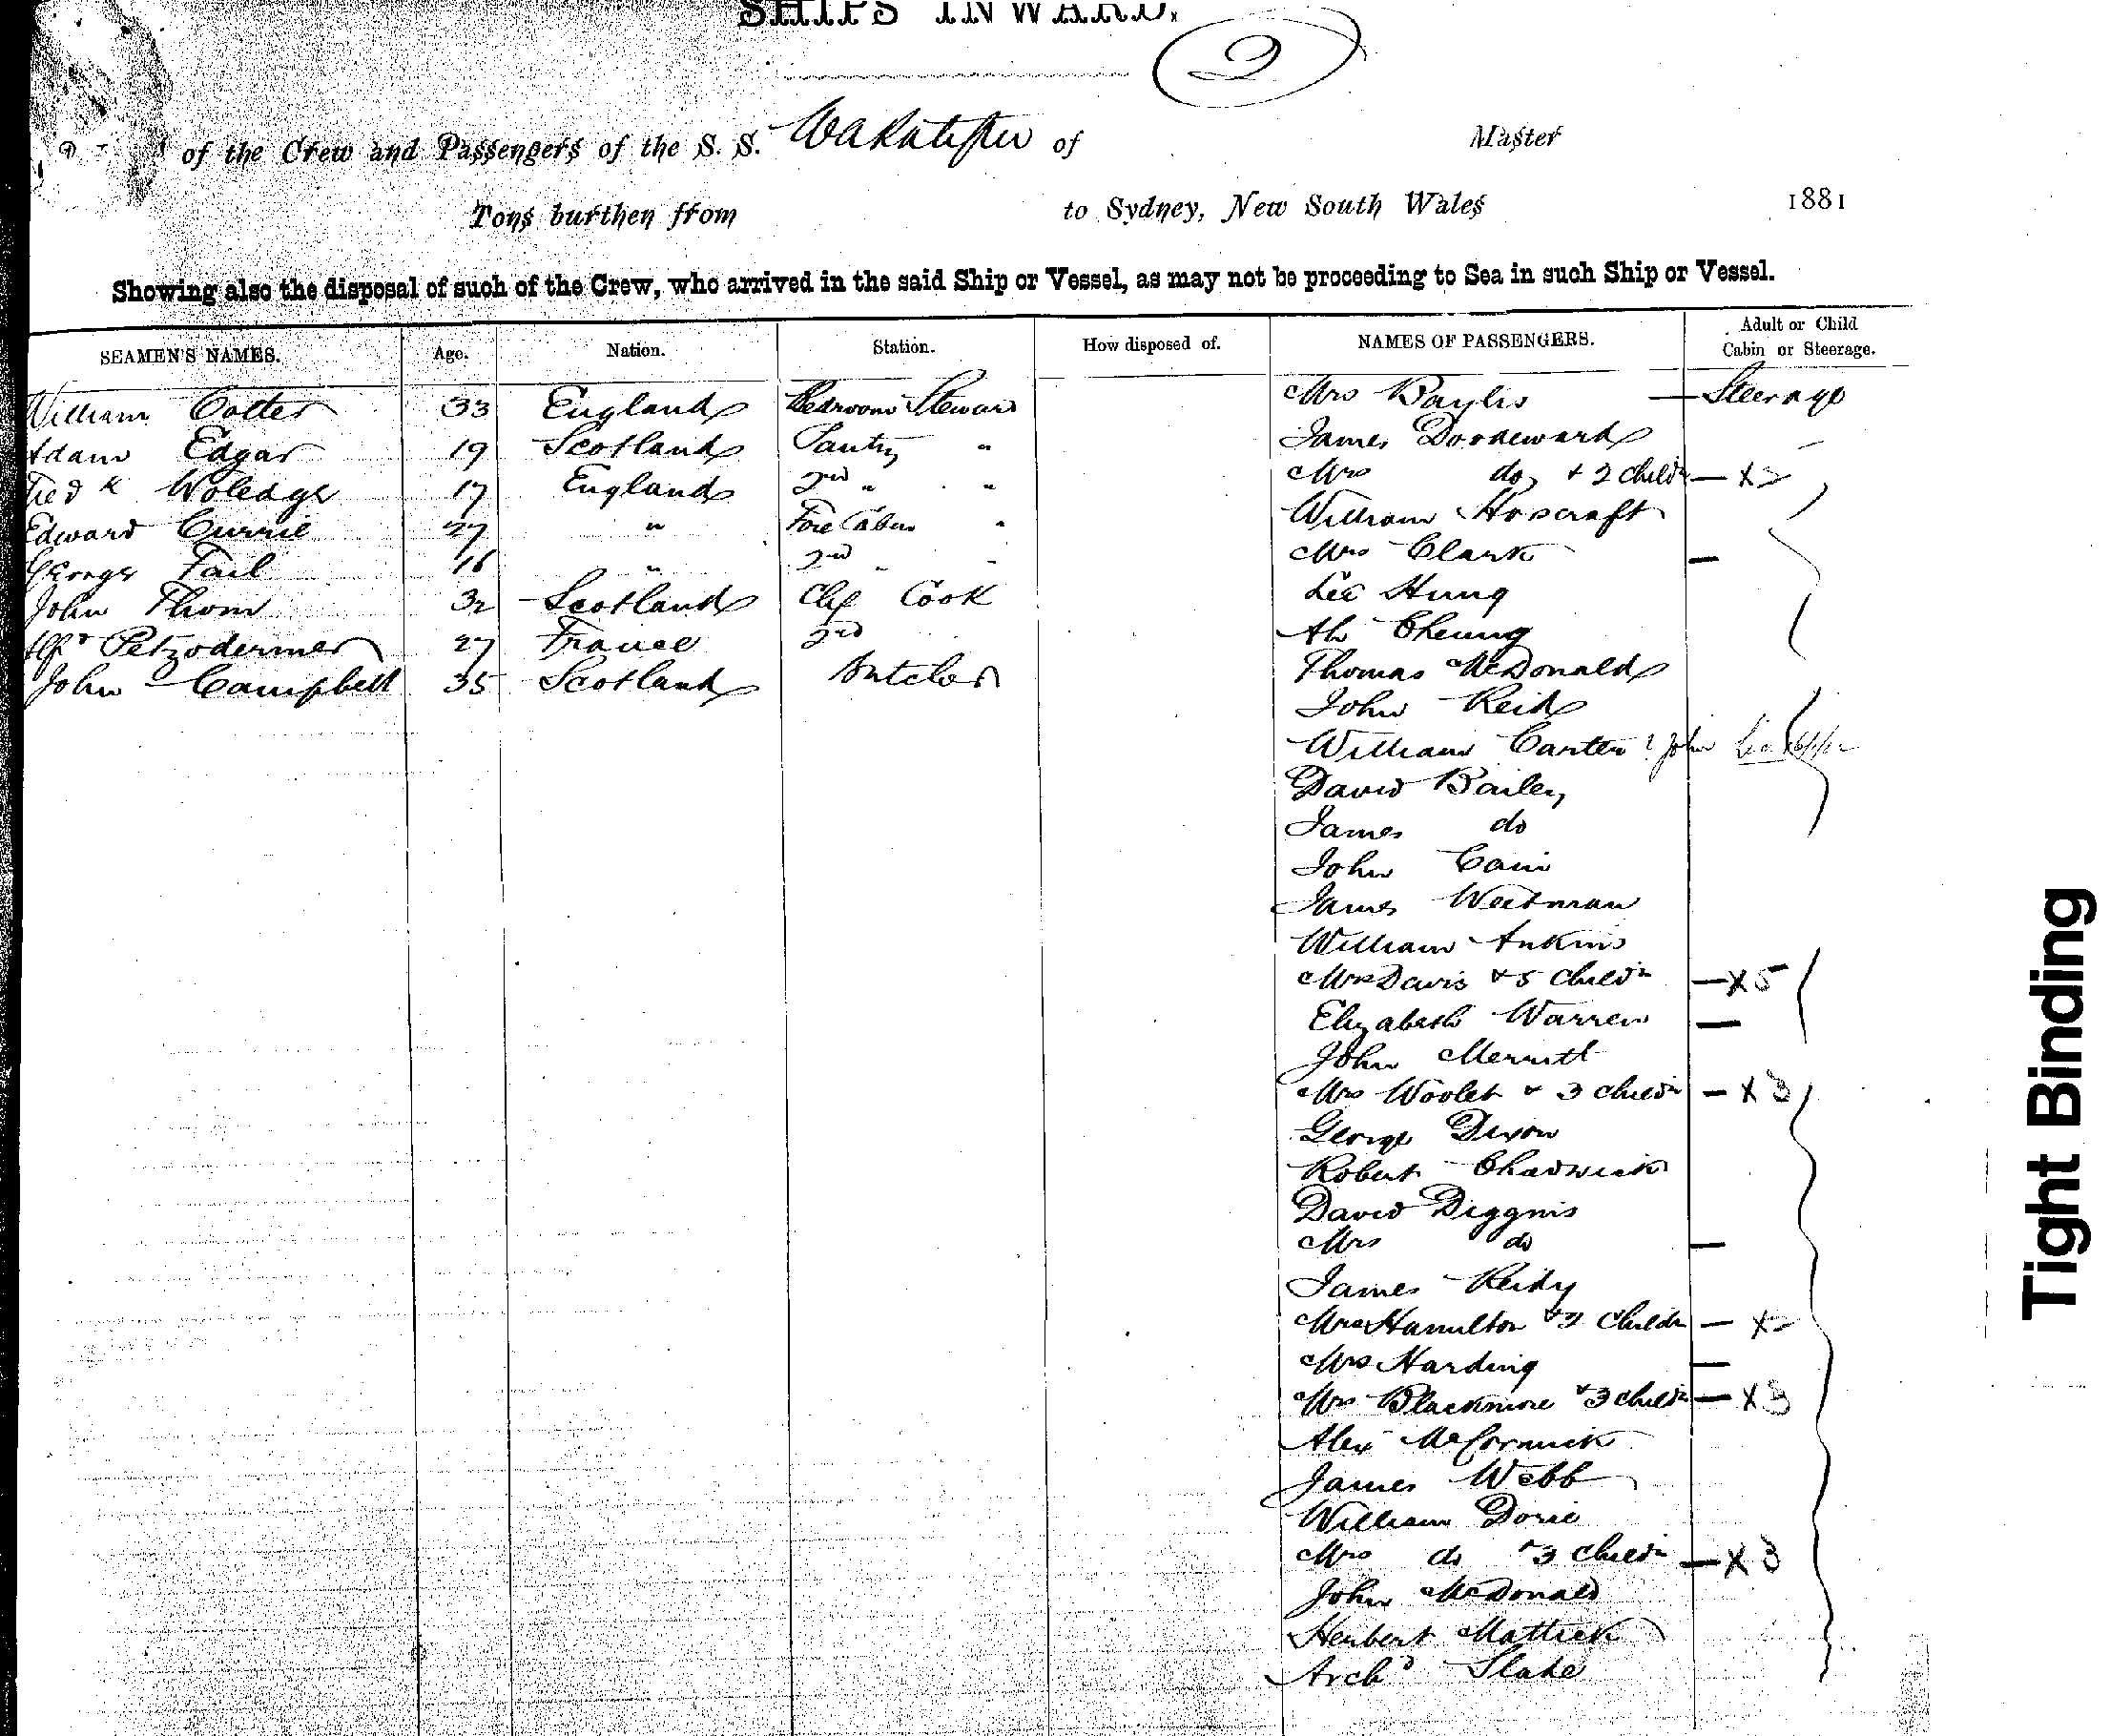 SHIPS INWARD.
2
of the Crew and Passengers of the S. S. Wakatipu of Master
Tons burthen from to Sydney, New South Wales 1881
Showing also the disposal of such of the Crew, who arrived in the said Ship or Vessel, as may not be proceeding to Sea in such Ship or Vessel.
SEAMEN'S NAMES. Age. Nation. Station. How disposed of. NAMES OF PASSENGERS. Adult or Child Cabin or Steerage.
William Cotter 33 England Bedroom Steward Mrs Baylis — Steerage
Adam Edgar 19 Scotland Pantry " James Doodeward
Fredk Woledge 17 England 2nd " " Mrs do, + 2 Childn — X2
Edward Currie 27 " Fore Cabin " William Horcraft
George Tail 16 " 2nd " " Mrs Clark —
John Thom 32 Scotland Chf Cook Lee Hung
Alfd 27 France 2nd Ah Cheung
John Campbell 35 Scotland Butcher Thomas McDonald
John Reid
William Carter ? John
David Bailey
James do
John Cain
James Weetman
William Ankins
Mrs Davis + 5 Childn — X5
Elizabeth Warren —
John Merritt
Mrs Woolet + 3 Childn — X3
George Dixon
Robert Chadwick
David Diggins
Mrs do —
James Reidy
Mrs Hamilton + 2 Childn — X2
Mrs Harding —
Mrs Blackmore + 3 Childn — X3
Alex McCormick
James Webb
William Dorie
Mrs do + 3 Childn — X3
John McDonald
Herbert Mattick
Archd Slade
Tight Binding